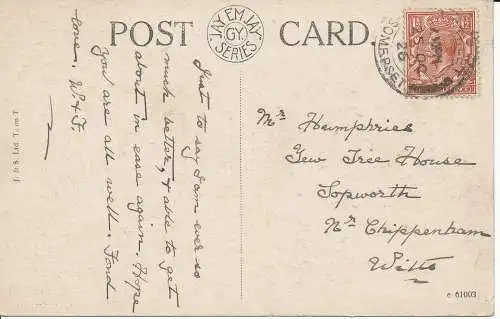 POST CARD.
JAY EM JAY
GY.
SERIES
Just to say I am ever so
much better, & able to get
about in ease again. Hope
you are all well. Fond
love. W. & F.
Mrs Humphries
Yew Tree House
Sopworth
Nr Chippenham
Wilts
SOMERSET
26
e 61003